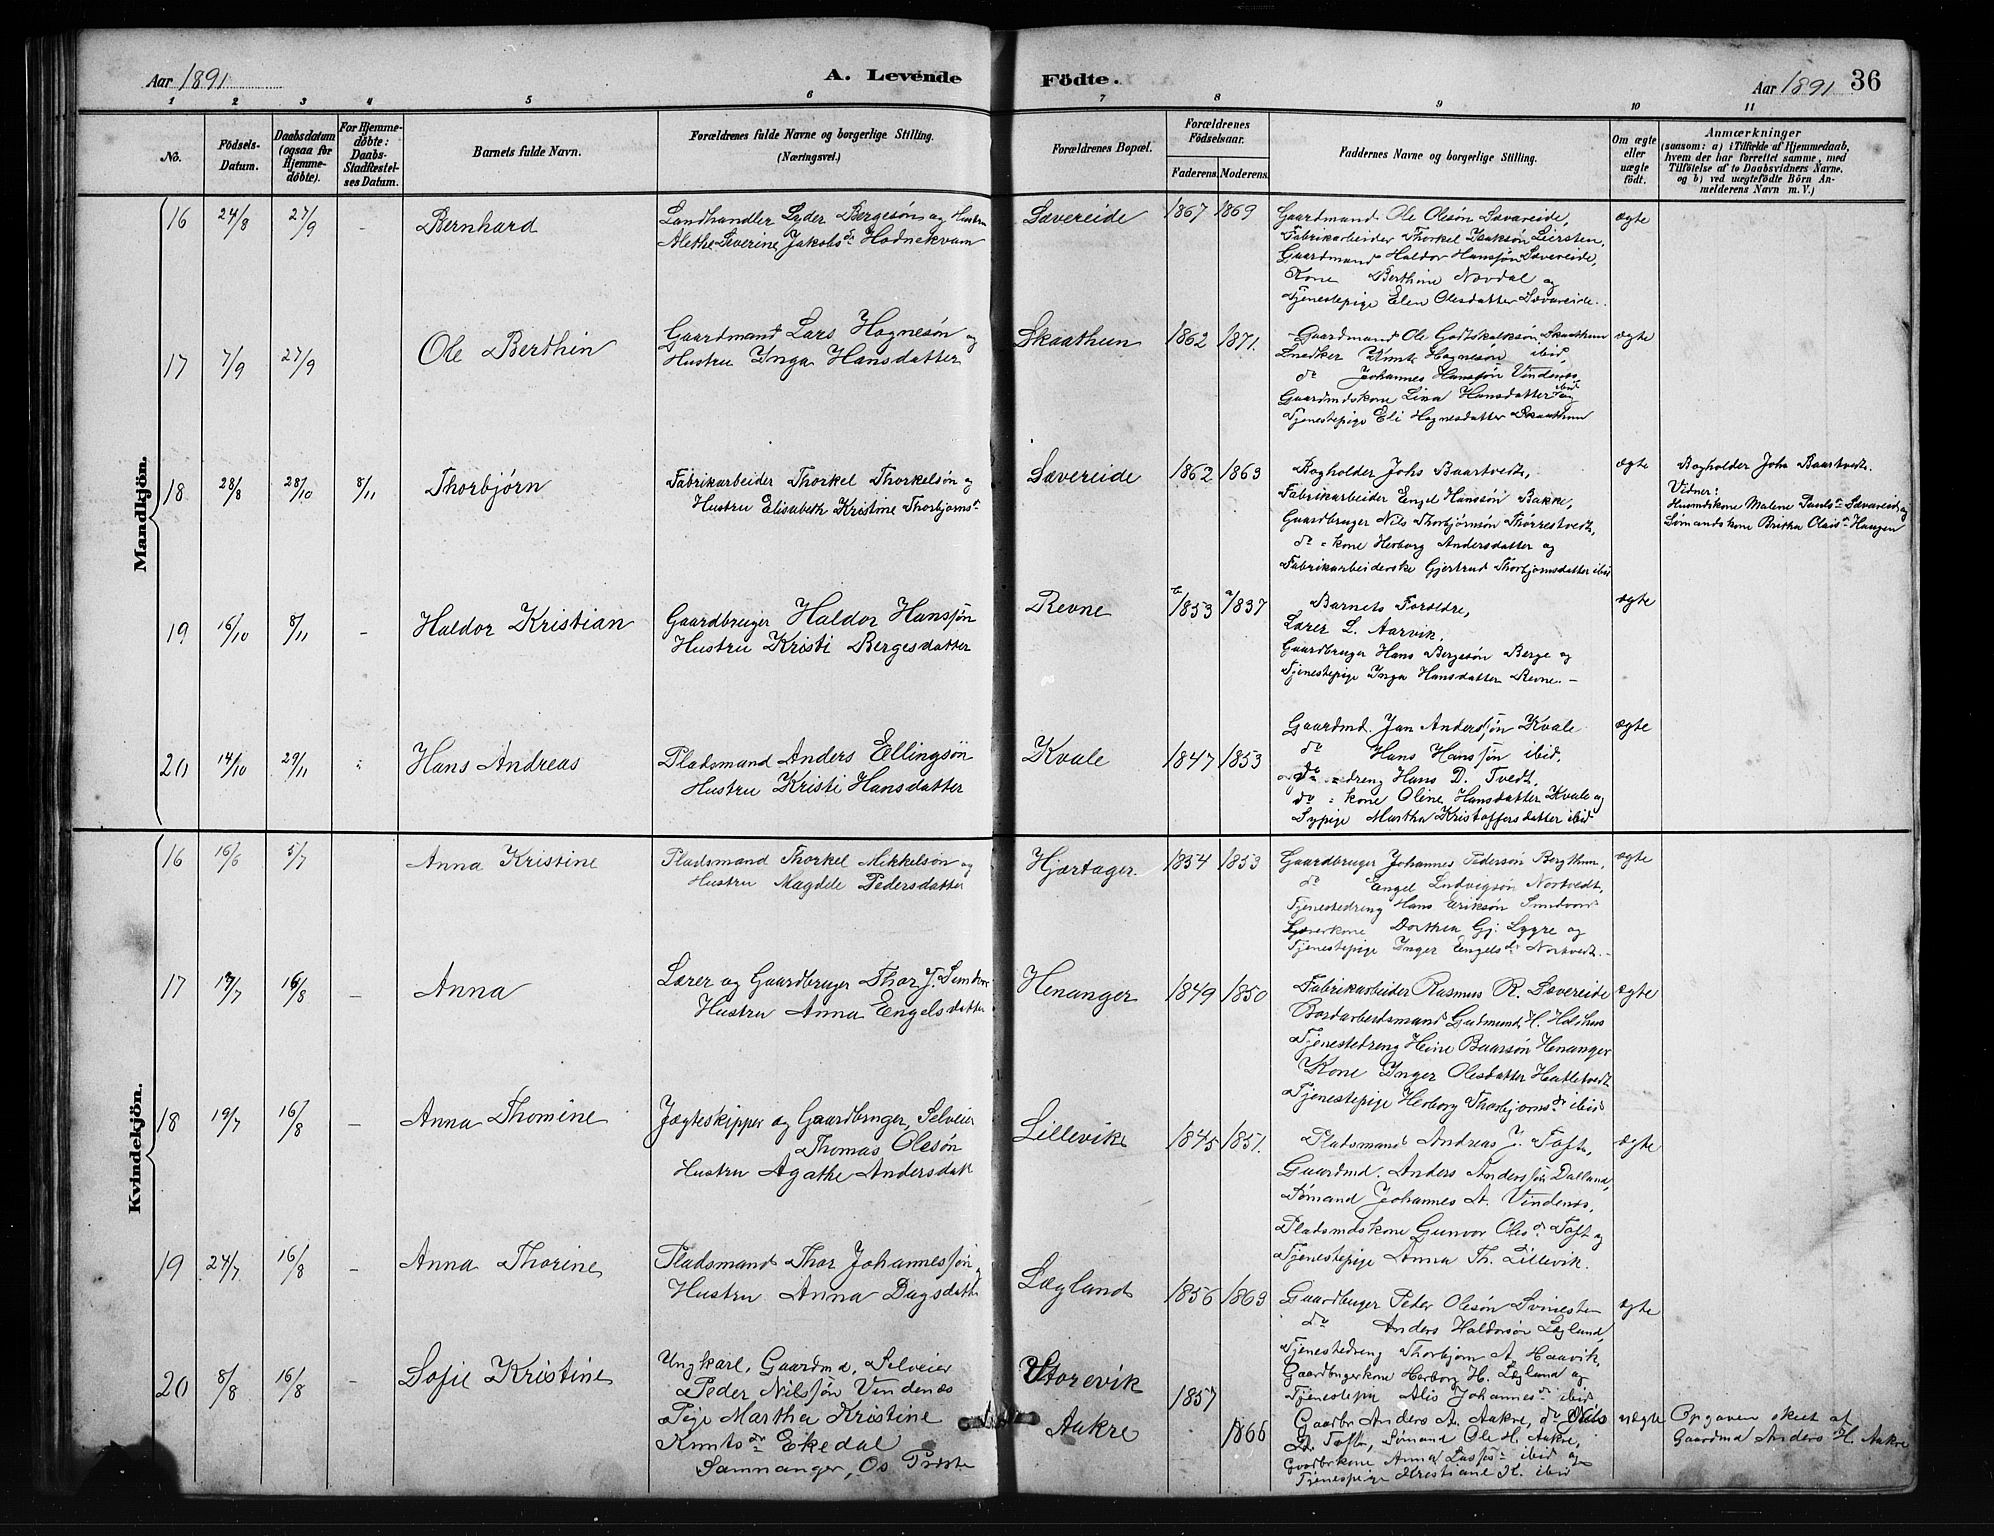 Aar 1891
A. Levende
Födte.
Aar 1891
36
1 2 3 4 5 6 7 8 9 10 11
No.
Födsels-
Datum.
Daabsdatum
(ogsaa for
Hjemme-
döbte).
For Hjemme-
döbte:
Daabs-
Stadfæstel-
ses Datum.
Barnets fulde Navn.
Forældrenes fulde Navne og borgerlige Stilling.
(Næringsvei.)
Forældrenes Bopæl.
Forældrenes
Födselsaar.
Faderens. Moderens.
Faddernes Navne og borgerlige Stilling.
Om ægte
eller
uægte
födt.
Anmærkninger
(saasom: a) i Tilfælde af Hjemmedaab,
hvem der har forrettet samme, med
Tilföielse af to Daabsvidners Navne.
og b) ved uægtefödte Börn An-
melderens Navn m. V.)
Mandkjön.
16 24/8 27/9 - Bernhard
Landhandler Lyder Bergesøn og Hustru
Alethe Severine Jakobs dr Hodnekvam
Sævereide 1867 1869
Gaardmand Ole Olesøn Sævareide,
Fabrikarbeider Thorkel Isaksøn Leirsten,
Gaardmand Haldor Hansøn Sævereide,
Kone Berthine Novdal og
Tjenestepige Elen Olesdatter Sævareide.
ægte
17 7/9 27/9 Ole Berthin
Gaardmand Lars Hognesøn og
Hustru Inga Hansdatter
Skaathun 1862 1871.
Gaardmand Ole Godtskalksøn Skaathun
Snedker Knut Hognesøn ibid,
do Johannes Hansøn Vindenæs
Gaardmdskone Lina Hansdatter ibid og
Tjenestepige Eli Hognesdatter Skaathun
ægte
18 28/8 28/10 8/11 Thorbjørn
Fabrikarbeider Thorkel Thorkelsøn og
Hustru Elisabeth Kristine Thorbjørns dr
Sævereide 1862 1863
Bogholder Johs Baartvedt,
Fabrikarbeider Engel Hanssøn Bakke,
Gaardbruger Nils Thorbjørnsøn Thørrestvedt,
do = kone Herborg Andersdatter og
Fabrikarbeiderske Gjertrud Thorbjørnsdatter ibid
ægte
Bogholder Johs Baartvedt.
Vidner:
Huusmdskone Malene Pauls dr Sævareide og
Sømandskone Britha Olais dr Haugen
19 16/10 8/11 - Haldor Kristian
Gaardbruger Haldor Hansøn
Hustru Kristi Bergesdatter
Revne 1853 1837
Barnets Forældre,
Lærer L. Aarvik,
Gaardbruger Hans Bergesøn Berge og
Tjenestepige Inga Hansdatter Revne. -
ægte
20 14/10 29/11 Hans Andreas
Pladsmand Anders Ellingsøn
Hustru Kristi Hansdatter
Kvale 1847 1853
Gaardmd. Jan Andersøn Kvale
do Hans Hanssøn ibid.
do = dreng Hans D. Tvedt,
do = kone Oline Hansdatter Kvale og
Sypige Martha Kristoffersdatter ibid
ægte
Kvindekjön.
16 16/6 5/7 Anna Kristine
Pladsmand Thorkel Mikkelsøn og
Hustru Magdele Pedersdatter
Hjørtager. 1854 1853
Gaardbruger Johannes Pedersøn Bergthun,
do Engel Ludvigsøn Nortvedt,
Tjenestedreng Hans Eriksøn Sundvor
Lærerkone Dorthea Gj. Lygre og
Tjenestepige Inger Engels dr Nortvedt.
ægte
17 17/7 16/8 - Anna
Lærer og Gaardbruger Thor T. Sundvor
Hustru Anna Engelsdatter
Henanger 1849 1850
Fabrikarbeider Rasmus R. Sævereide
Bordarbeidsmand Gudmund H. Holdhus
Tjenestedreng Heine Baarsøn Henanger
Kone Inger Olesdatter Hatletvedt
Tjenestepige Herborg Thorbjørns dr ibid
ægte
18 19/7 16/8 - Anna Thomine
Jægteskipper og Gaardbruger, Selveier
Thomas Olesøn
Hustru Agathe Andersdatt
Lillevik 1845 1851.
Pladsmand Andreas J. Toft,
Gaardmd. Anders Anderssøn Dalland,
Sømand Johannes A. Vindenæs,
Pladsmdskone Gunvor Oles dr Toft og
Tjenestepige Anna Th. Lillevik.
ægte
19 24/7 16/8 - Anna Thorine
Pladsmand Thor Johannessøn og
Hustru Anna Dagsdatter
Lægland 1856 1863
Gaardbruger Peder Olesøn Svinesten
do Anders Haldorsøn Lægland,
Tjenestedreng Thorbjørn A. Haavik,
Gaardbrugerkone Herborg H. Lægland og
Tjenestepig Alis Johannes dr ibid
ægte
20 8/8 16/8 - Sofie Kristine
Ungkarl, Gaardmd, Selveier
Peder Nilssøn Vindenæs
Pige Martha Kristine
Knuts dr Ekedal
Samnanger, Os Præst
Storevik
Aakre
1857
1866
Gaardbr Anders A. Aakre, do Nils
D. Toft, Sømand Ole H. Aakre,
Gaardbrkone Anna Lasses dr ibid og
Tjenestepige Kristiane K. ibid
uægte
Opgaven skeet af
Gaardmd Anders H. Aakre